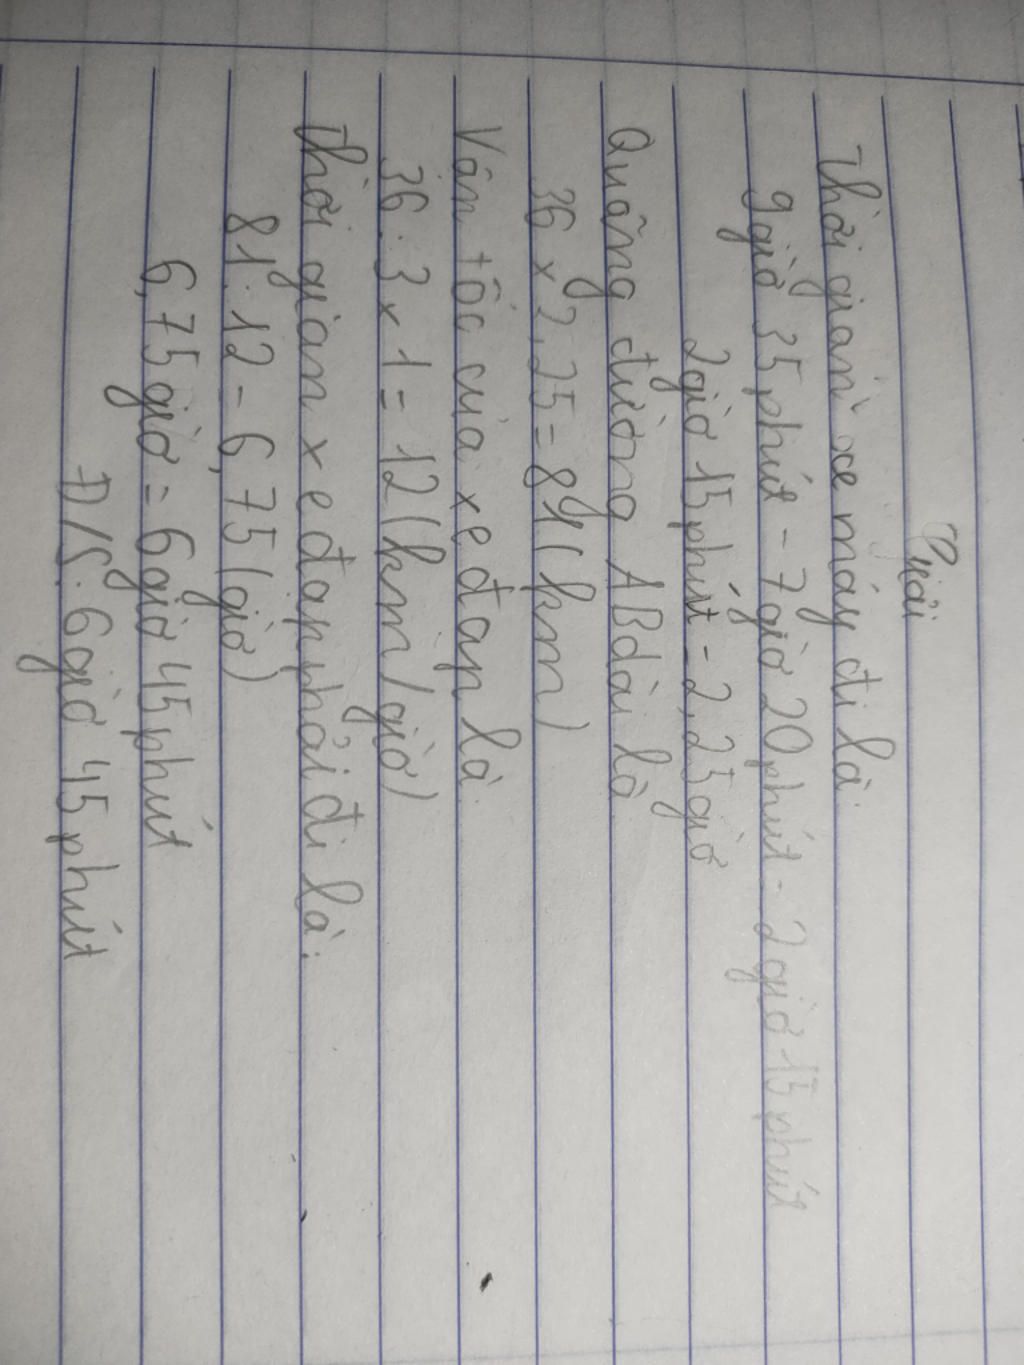 Giải
Thời gian xe máy đi là:
9giờ 35 phút - 7giờ 20 phút = 2giờ 15 phút
2giờ 15 phút = 2,25 giờ
Quãng đường AB dài là
36 x 2,25 = 81 (km)
Vân tốc của xe đạp là:
36 : 3 x 1 = 12 (km/giờ)
Thời gian xe đạp phải đi là:
81 : 12 = 6,75 (giờ)
6,75 giờ = 6giờ 45 phút
Đ/S: 6giờ 45 phút